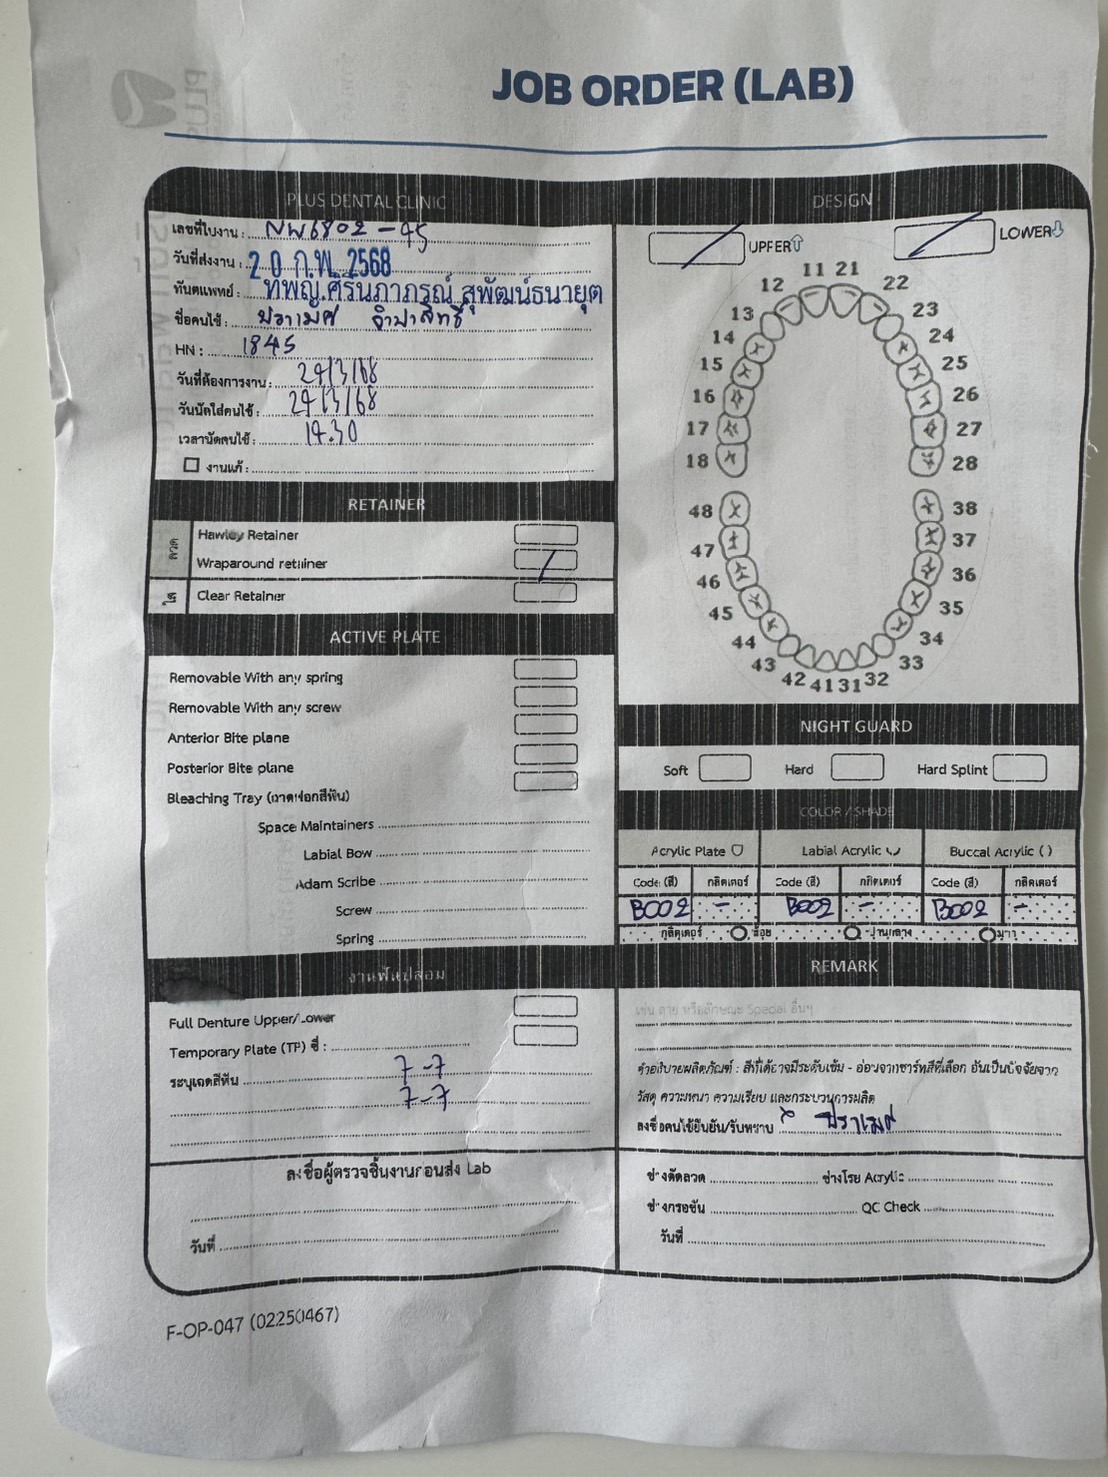 JOB ORDER (LAB)
PLUS DENTAL CLINIC
เลขที่ใบงาน : NW6802-45
วันที่ส่งงาน : 20 ก.พ. 2568
ทันตแพทย์ : ทพญ.ศิรินภาภรณ์ สุพัฒน์ธนายุต
ชื่อคนไข้ : ปราเมศ จำปาสิทธิ์
HN : 1845
วันที่ต้องการงาน : 24/3/68
วันนัดใส่คนไข้ : 24/3/68
เวลานัดคนไข้ : 14.30
งานแก้ :
RETAINER
ลวด
Hawley Retainer
Wraparound retainer
ใส
Clear Retainer
ACTIVE PLATE
Removable With any spring
Removable With any screw
Anterior Bite plane
Posterior Bite plane
Bleaching Tray (ถาดฟอกสีฟัน)
Space Maintainers
Labial Bow
Adam Scribe
Screw
Spring
งานฟันปลอม
Full Denture Upper/Lower
Temporary Plate (TP) ซี่ :
ระบุเฉดสีฟัน 7-7
7-7
ลงชื่อผู้ตรวจชิ้นงานก่อนส่ง Lab
วันที่
DESIGN
UPPER LOWER
11 21
12 22
13 23
14 24
15 25
16 26
17 27
18 28
48 38
47 37
46 36
45 35
44 34
43 33
42 41 31 32
NIGHT GUARD
Soft Hard Hard Splint
COLOR / SHADE
Acrylic Plate Labial Acrylic Buccal Acrylic ( )
Code (สี) กลิตเตอร์ Code (สี) กลิตเตอร์ Code (สี) กลิตเตอร์
B002 - B002 - B002 -
กลิตเตอร์ น้อย ปานกลาง มาก
REMARK
เช่น ลาย หรือลักษณะ Special อื่นๆ
คำอธิบายผลิตภัณฑ์ : สีที่ได้อาจมีระดับเข้ม - อ่อนจากชาร์ทสีที่เลือก อันเป็นปัจจัยจาก
วัสดุ ความหนา ความเรียบ และกระบวนการผลิต
ลงชื่อคนไข้ยืนยัน/รับทราบ x ปราเมศ
ช่างดัดลวด ช่างโรย Acrylic
ช่างกรอขัน QC Check
วันที่
F-OP-047 (02250467)